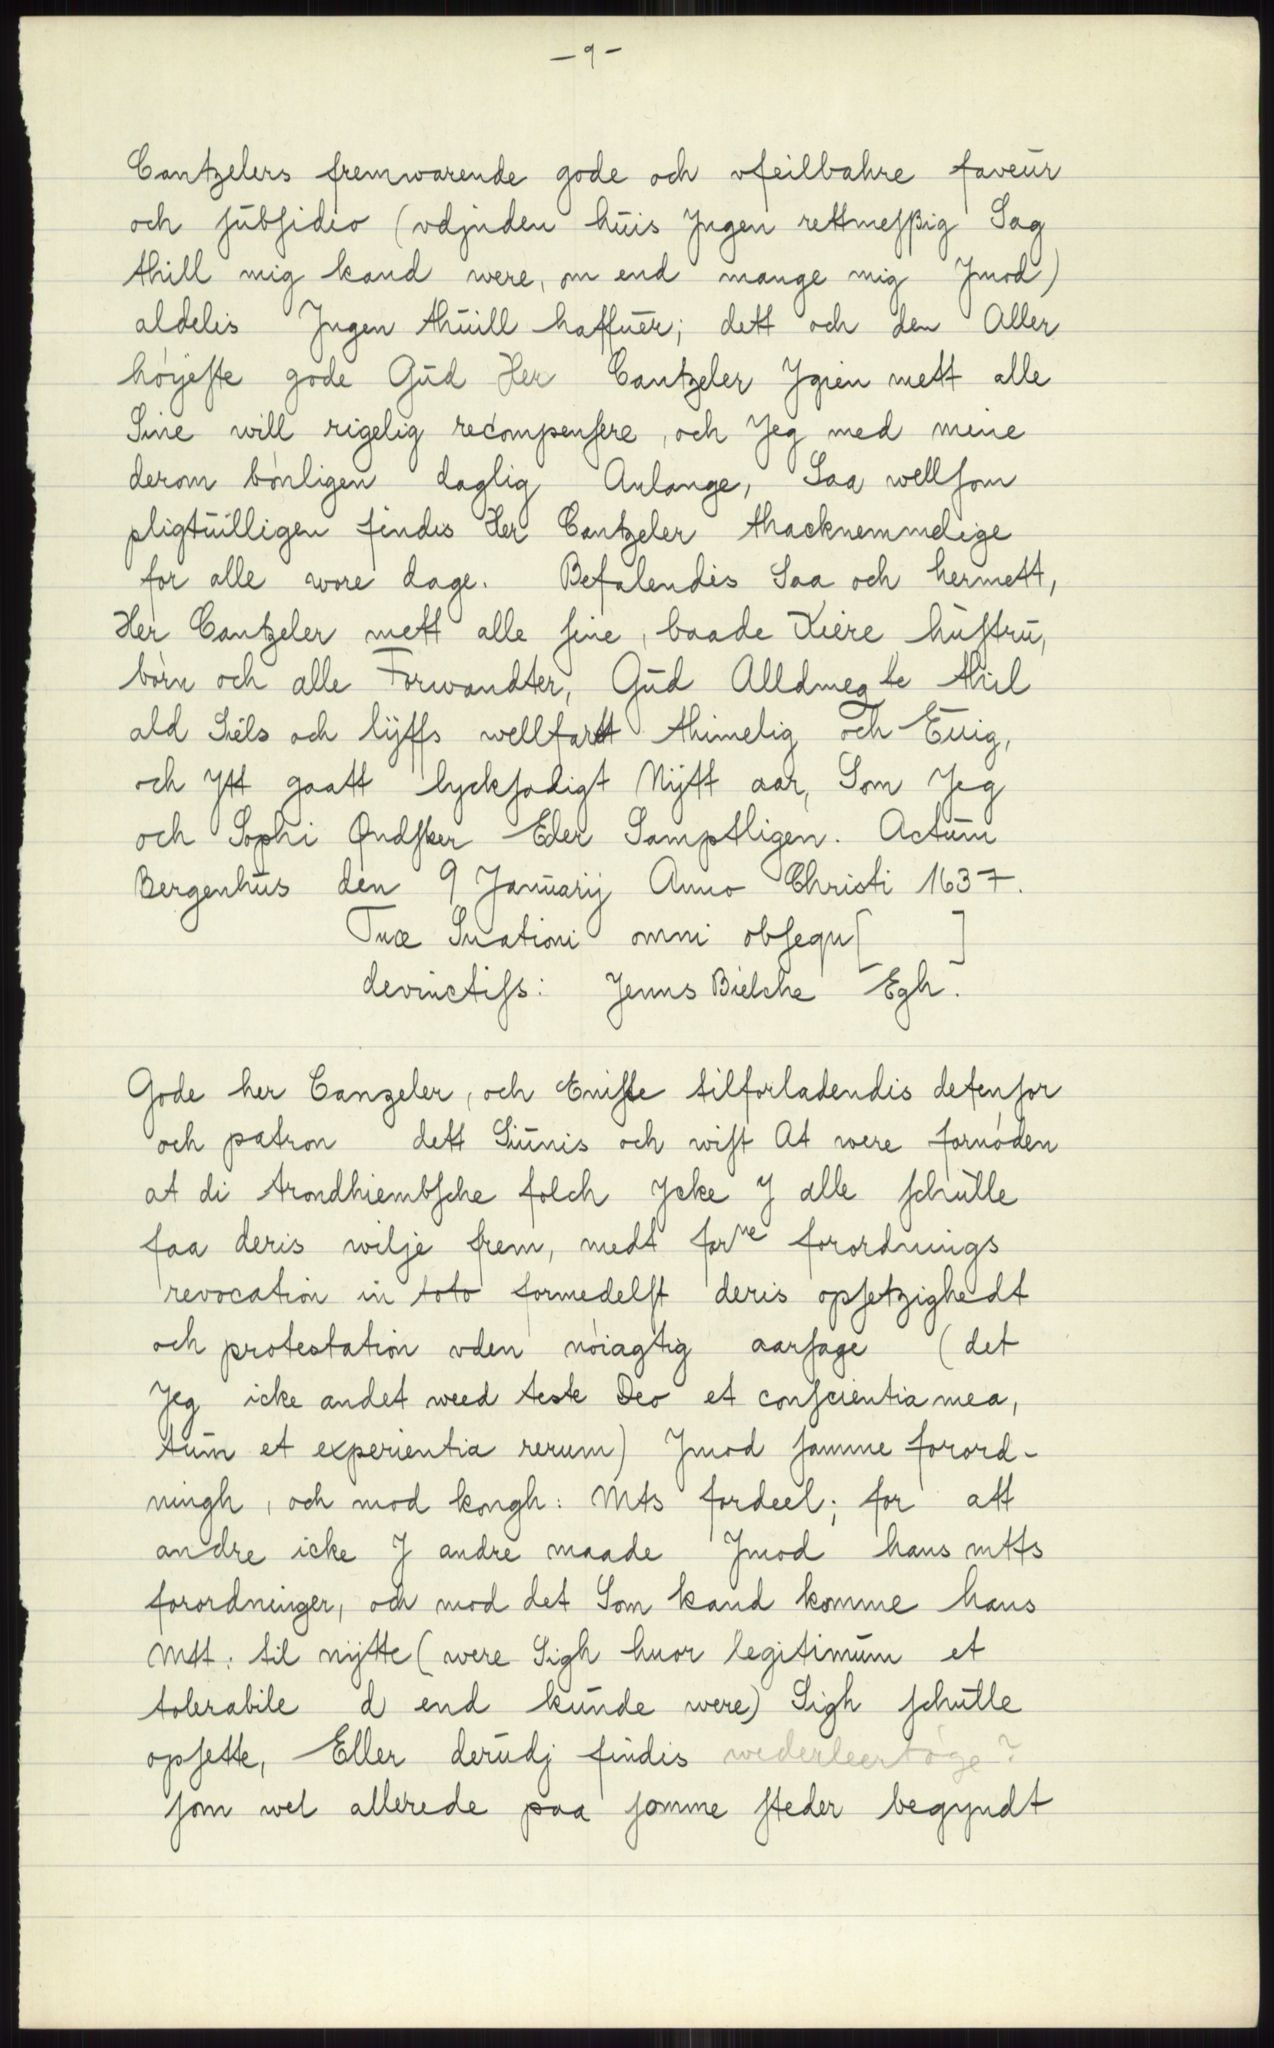 - 9 -
Cantzelers fremwarende gode och vfeilbahre faveur
och subsidio (vdjnden huis Jngen rettmeßig Sag
thill mig kand were, om end mange mig Jmod)
aldelis Jngen thuill haffuer; dett och den Aller
höjeste gode Gud Her Cantzeler Jgien mett alle
Sine will rigelig recompensere, och Jeg med mine
derom bönligen daglig Anlange, Saa wellsom
pligtuilligen findis Her Cantzeler thacknemmelige
for alle wore dage. Befalendis Saa och hermett,
Her Cantzeler mett alle sine, baade Kiere hustru,
börn och alle Forwandter, Gud Alldmegte thil
ald Siels och lijffs wellfartt thimelig och Euig,
och Jtt gaatt lycksadigt Nijtt aar, Som Jeg
och Sophi Ønsker Eder Samptligen. Actum
Bergenhus den 9 Januarij Anno Christi 1637.
Tuæ Suationi omni obsequ[ ]
devinctiss: Jenns Bielche Egh.
Gode her Canzeler, och Eniste tilforladendis defensor
och patron dett Siunis och wist At were fornöden
at di trondhiembsche folch Jcke J alle schulle
faa deris wilje frem, medt forne forordnings
revocation in toto formedelst deris opsetzighedt
och protestation vden nöiagtig aarsage (det
Jeg icke andet weed teste Deo et conscientia mea,
tum et experientia rerum) Jmod samme forord-
ningh, och mod kongh: Mts fordeel; for att
andre icke J andre maade Jmod hans mtts
forordninger, och mod det Som kand komme hans
Mtt: til nijtte (were Sigh huor legitimum et
tolerabile d end kunde were) Sigh schulle
opsette, Eller derudj findis wederleertöge?
som wel allerede paa somme steder begyndt